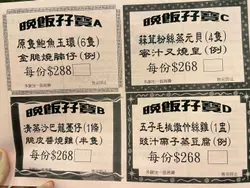 晚飯孖寶A
原隻鮑魚玉環(6隻)
金脆燒腩仔(例)
每份$288
晚飯孖寶C
蒜茸粉絲蒸元貝(4隻)
蜜汁叉燒皇(例)
每份$268
晚飯孖寶B
清蒸沙巴龍躉仔(1條)
脆皮醬燒雞(半隻)
每份$268
晚飯孖寶D
五子毛桃燉竹絲雞(1隻)
豉汁帶子蒸豆腐(例)
每份$268